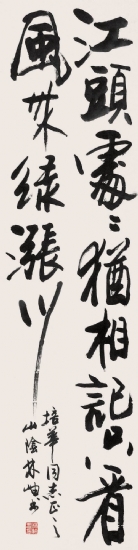 江頭處處猶相記只看
風业绿漲川
培華同志正之
山陰林岫書